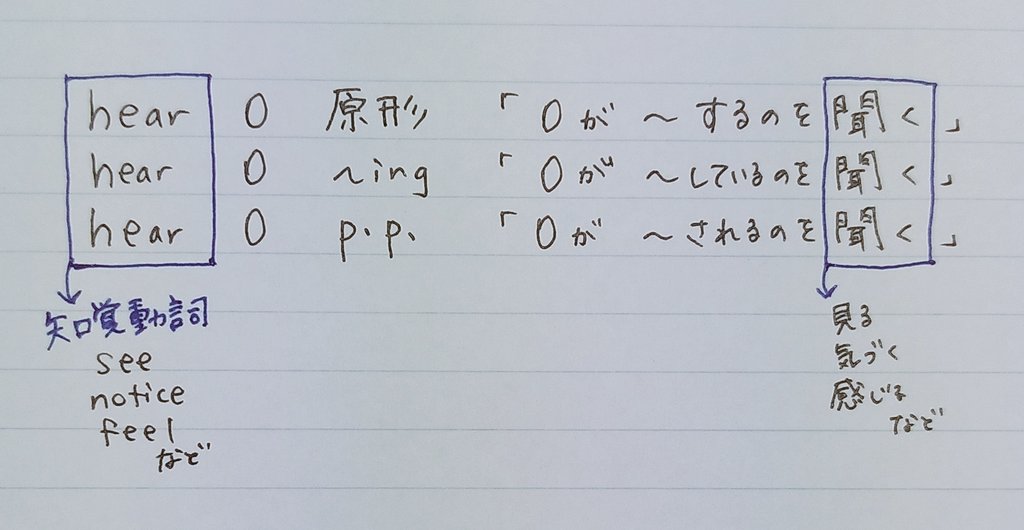 hear O 原形 「Oが ~するのを聞く」
hear O ~ing 「Oが ~しているのを聞く」
hear O p.p. 「Oが ~されるのを聞く」
知覚動詞
see
notice
feel
など
見る
気づく
感じる
など